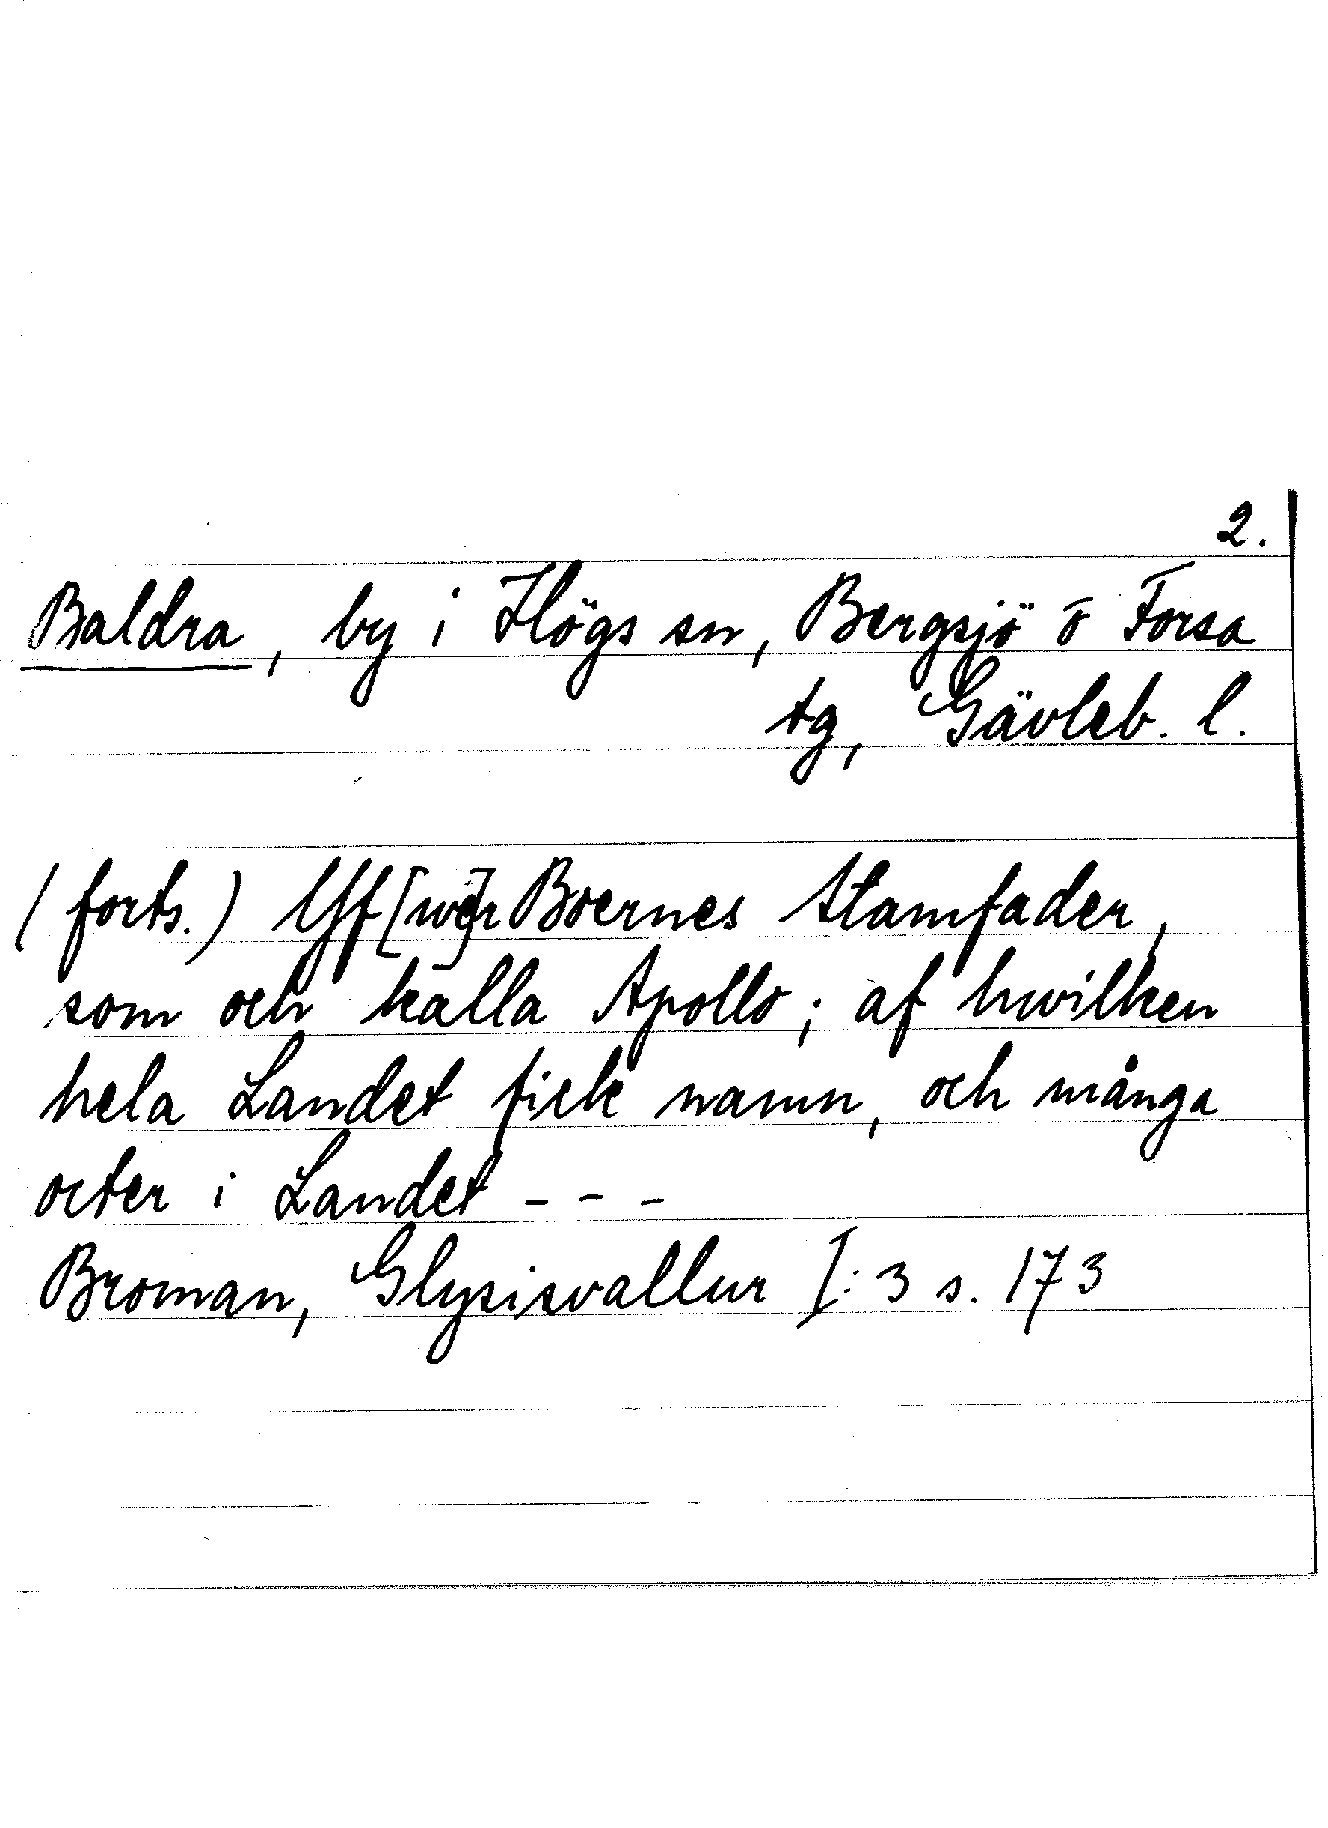 2.
Baldra, by i Högs sn, Bergsjö o Forsa
tg, Gävleb. l.
(forts.) Yf[we]r Boernes Stamfader,
som och kalla Apollo; af hwilken
hela Landet fick namn, och många
orter i Landet - - -
Broman, Glysisvallur I:3 s. 173